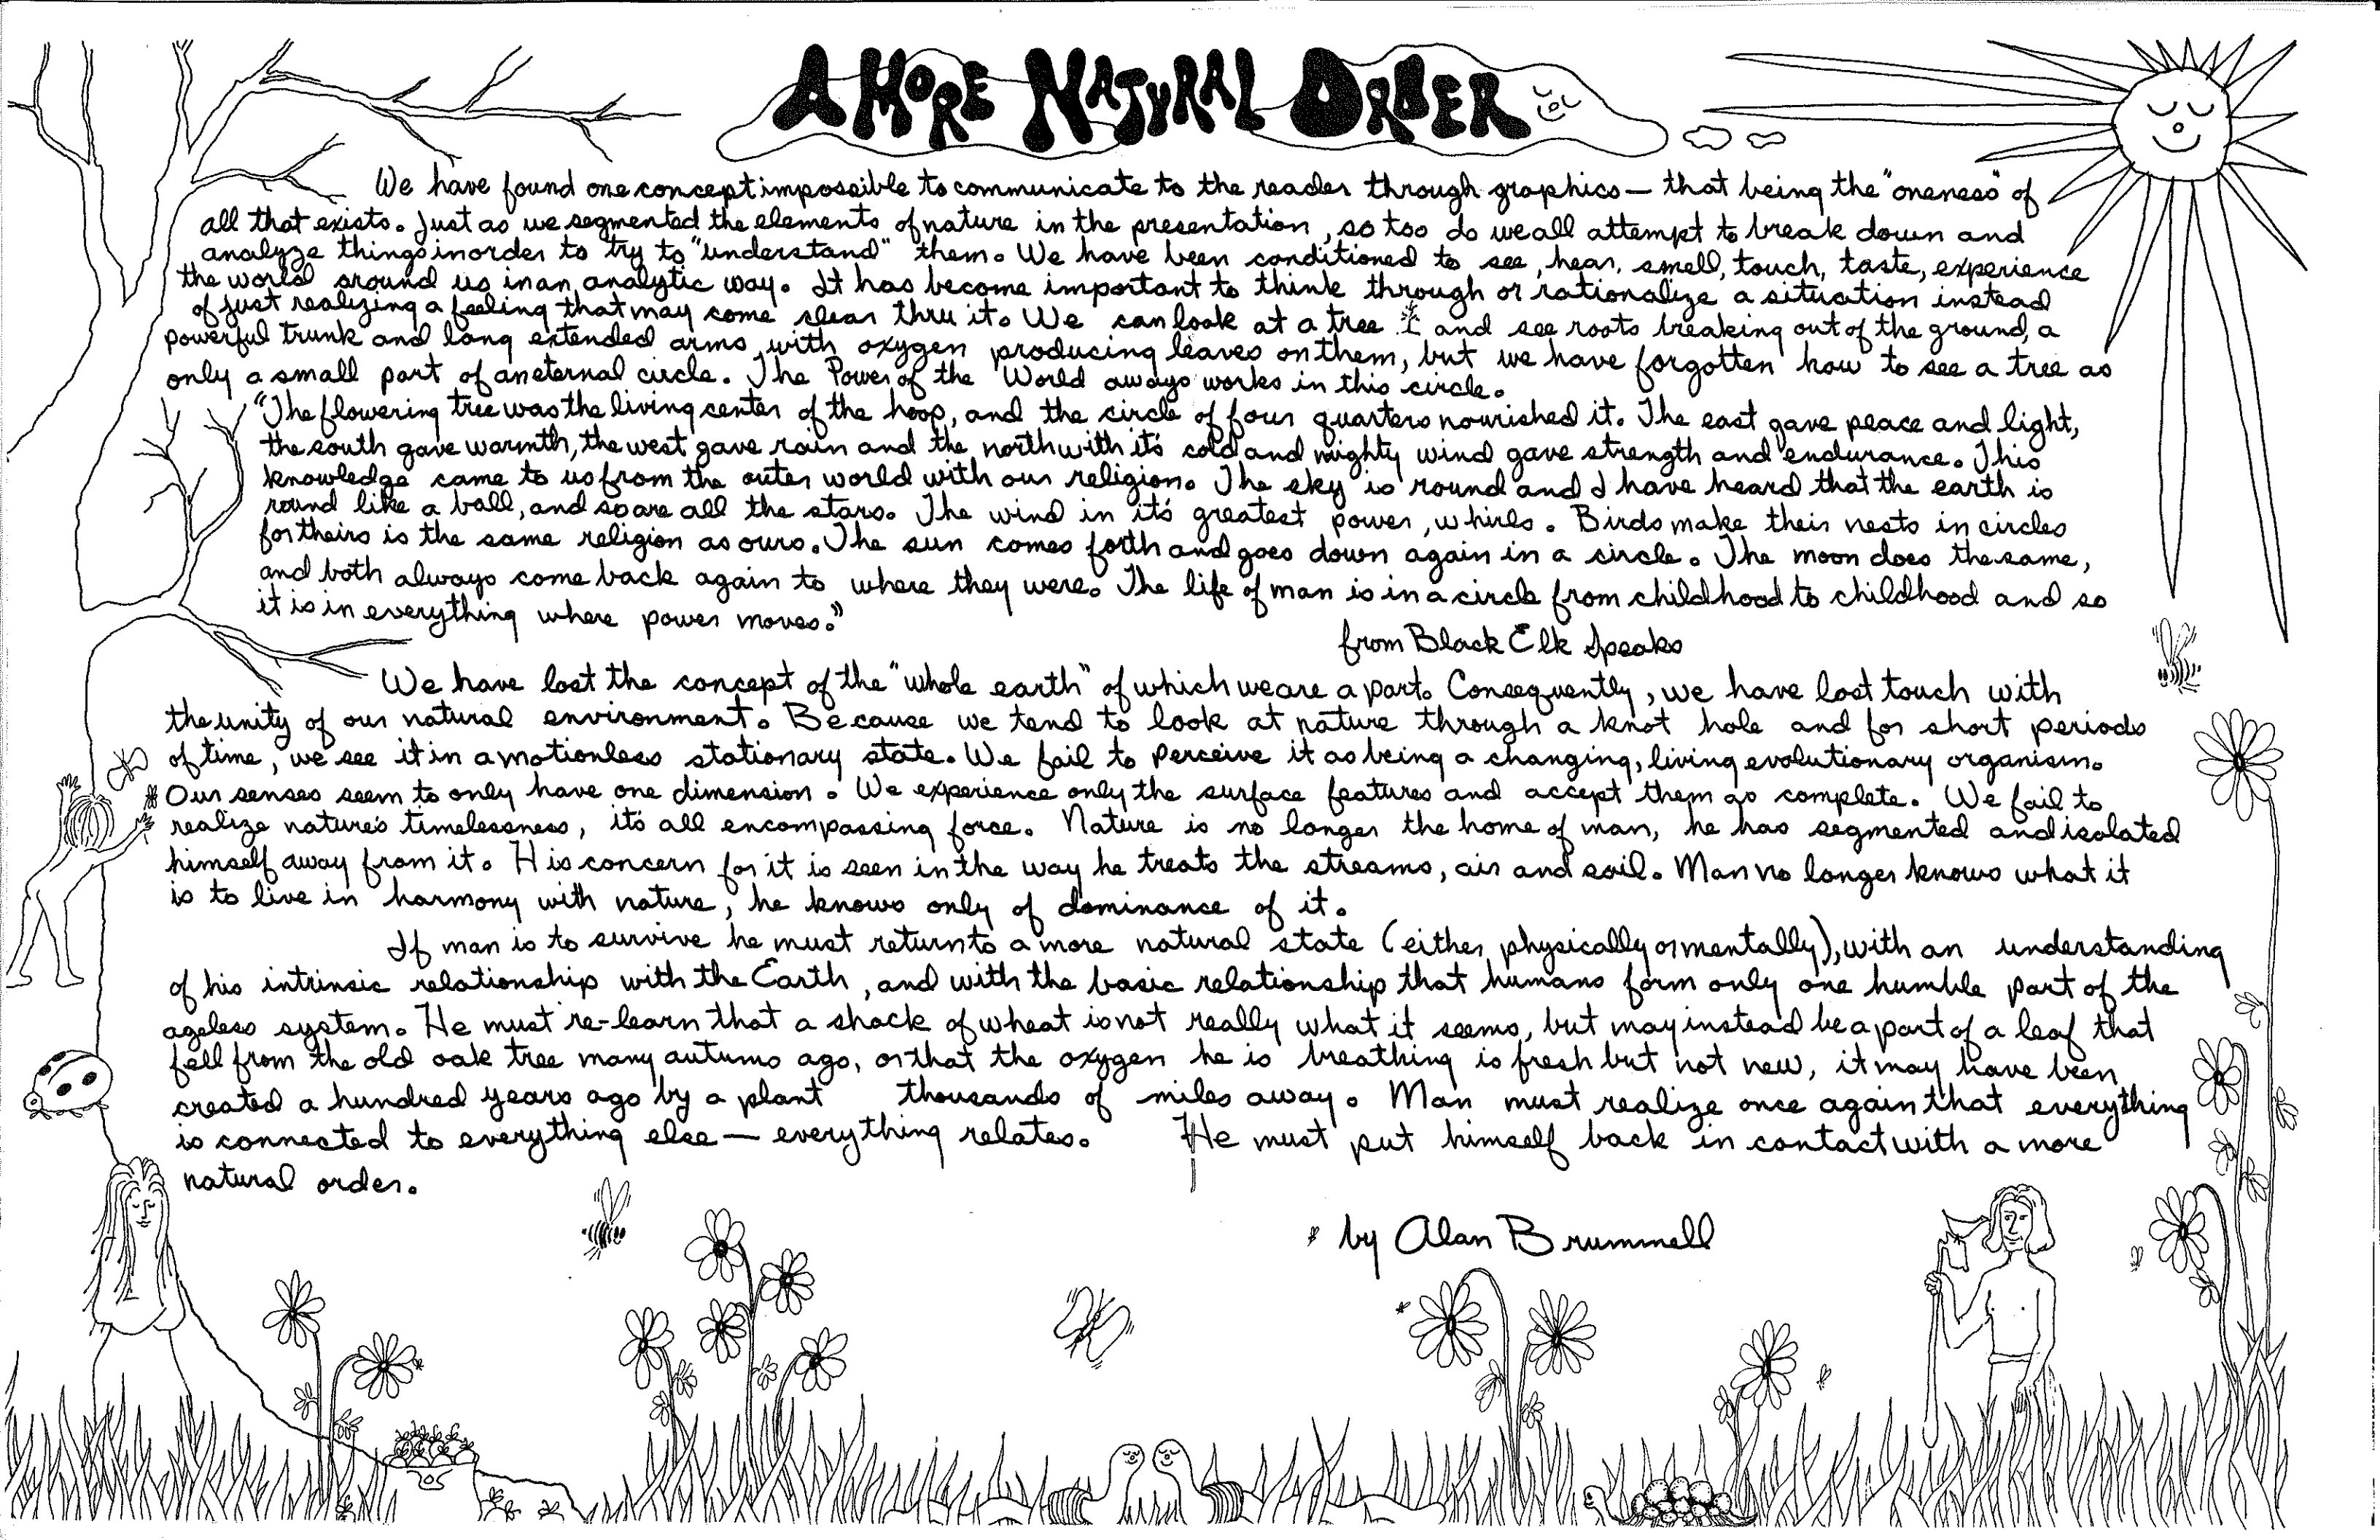 A MORE NATURAL ORDER
We have found one concept impossible to communicate to the reader through graphics — that being the "oneness" of
all that exists. Just as we segmented the elements of nature in the presentation, so too do we all attempt to break down and
analyze things in order to try to "understand" them. We have been conditioned to see, hear, smell, touch, taste, experience
the world around us in an analytic way. It has become important to think through or rationalize a situation instead
of just realizing a feeling that may come clear thru it. We can look at a tree and see roots breaking out of the ground, a
powerful trunk and long extended arms with oxygen producing leaves on them, but we have forgotten how to see a tree as
only a small part of an eternal circle. The Power of the World aways works in this circle.
"The flowering tree was the living center of the hoop, and the circle of four quarters nourished it. The east gave peace and light,
the south gave warmth, the west gave rain and the north with it's cold and mighty wind gave strength and endurance. This
knowledge came to us from the outer world with our religion. The sky is round and I have heard that the earth is
round like a ball, and so are all the stars. The wind in it's greatest power, whirls. Birds make their nests in circles
for theirs is the same religion as ours. The sun comes forth and goes down again in a circle. The moon does the same,
and both always come back again to where they were. The life of man is in a circle from childhood to childhood and so
it is in everything where power moves."
from Black Elk Speaks
We have lost the concept of the "whole earth" of which we are a part. Consequently, we have lost touch with
the unity of our natural environment. Because we tend to look at nature through a knot hole and for short periods
of time, we see it in a motionless stationary state. We fail to perceive it as being a changing, living evolutionary organism.
Our senses seem to only have one dimension. We experience only the surface features and accept them as complete. We fail to
realize nature's timelessness, it's all encompassing force. Nature is no longer the home of man, he has segmented and isolated
himself away from it. His concern for it is seen in the way he treats the streams, air and soil. Man no longer knows what it
is to live in harmony with nature, he knows only of dominance of it.
If man is to survive he must return to a more natural state (either physically or mentally), with an understanding
of his intrinsic relationship with the Earth, and with the basic relationship that humans form only one humble part of the
ageless system. He must re-learn that a shock of wheat is not really what it seems, but may instead be a part of a leaf that
fell from the old oak tree many autums ago, or that the oxygen he is breathing is fresh but not new, it may have been
created a hundred years ago by a plant thousands of miles away. Man must realize once again that everything
is connected to everything else — everything relates. He must put himself back in contact with a more
natural order.
by Alan Brummell